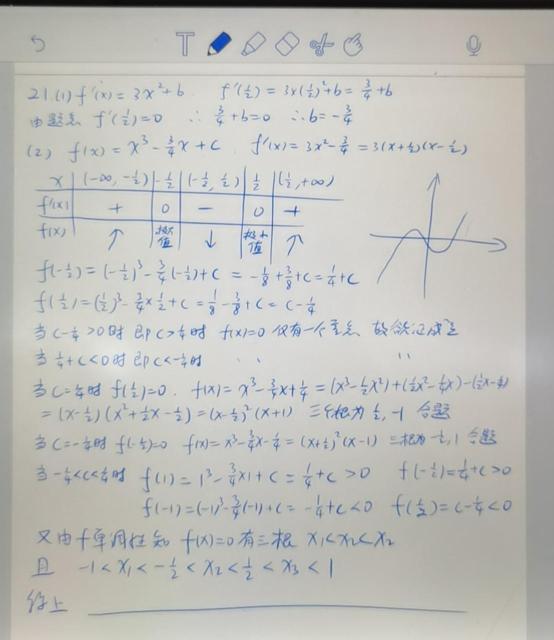 21.(1) f'(x) = 3x²+b   f'(½) = 3×(½)²+b = ¾+b
由题意 f'(½)=0 ∴ ¾+b=0 ∴b=-¾
(2) f(x) = x³-¾x+c   f'(x) = 3x²-¾ =3(x+½)(x-½)
x (-∞,-½) -½ (-½,½) ½ (½,+∞)
f'(x) + 0 − 0 +
f(x) ↑ 极大值 ↓ 极小值 ↑
f(-½) = (-½)³-¾(-½)+c = -⅛+⅜+c=¼+c
f(½) = (½)³-¾×½+c = ⅛-⅜+c = c-¼
当 c-¼>0时 即c>¼时 f(x)=0 仅有一个零点 故欲证成立
当 ¼+c<0时 即c<-¼时 〃 〃
当c=¼时 f(½)=0. f(x) = x³-¾x+¼ = (x³-½x²)+(½x²-¼x)-(½x-¼)
= (x-½)(x²+½x-½) = (x-½)²(x+1) 三个根为½,-1 合题
当c=-¼时 f(-½)=0 f(x)=x³-¾x-¼ = (x+½)²(x-1) 三根为-½,1 合题
当-¼<c<¼时 f(1) = 1³-¾×1+c = ¼+c >0   f(-½)=¼+c>0
f(-1)=(-1)³-¾(-1)+c = -¼+c<0   f(½)=c-¼<0
又由f单调性知 f(x)=0有三根 x₁<x₂<x₂
且 -1<x₁<-½<x₂<½<x₃<1
综上